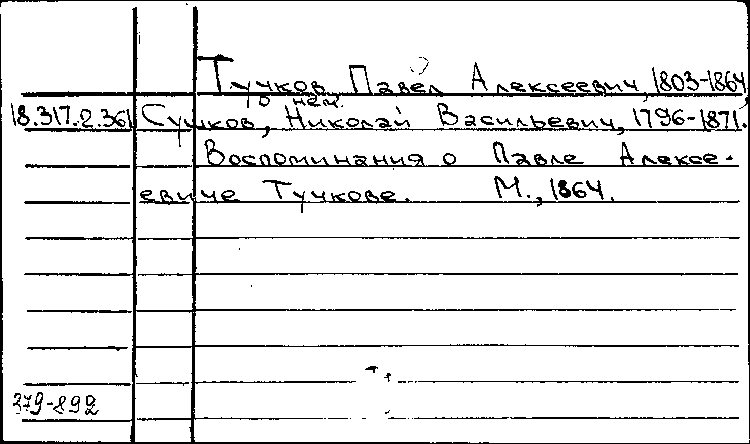 Тучков, Павел Алексеевич, 1803-1864
о нем.
18.317.2.361 Сушков, Николай Васильевич, 1796-1871.
Воспоминания о Павле Алексе-
евиче Тучкове. М., 1864.
379-892